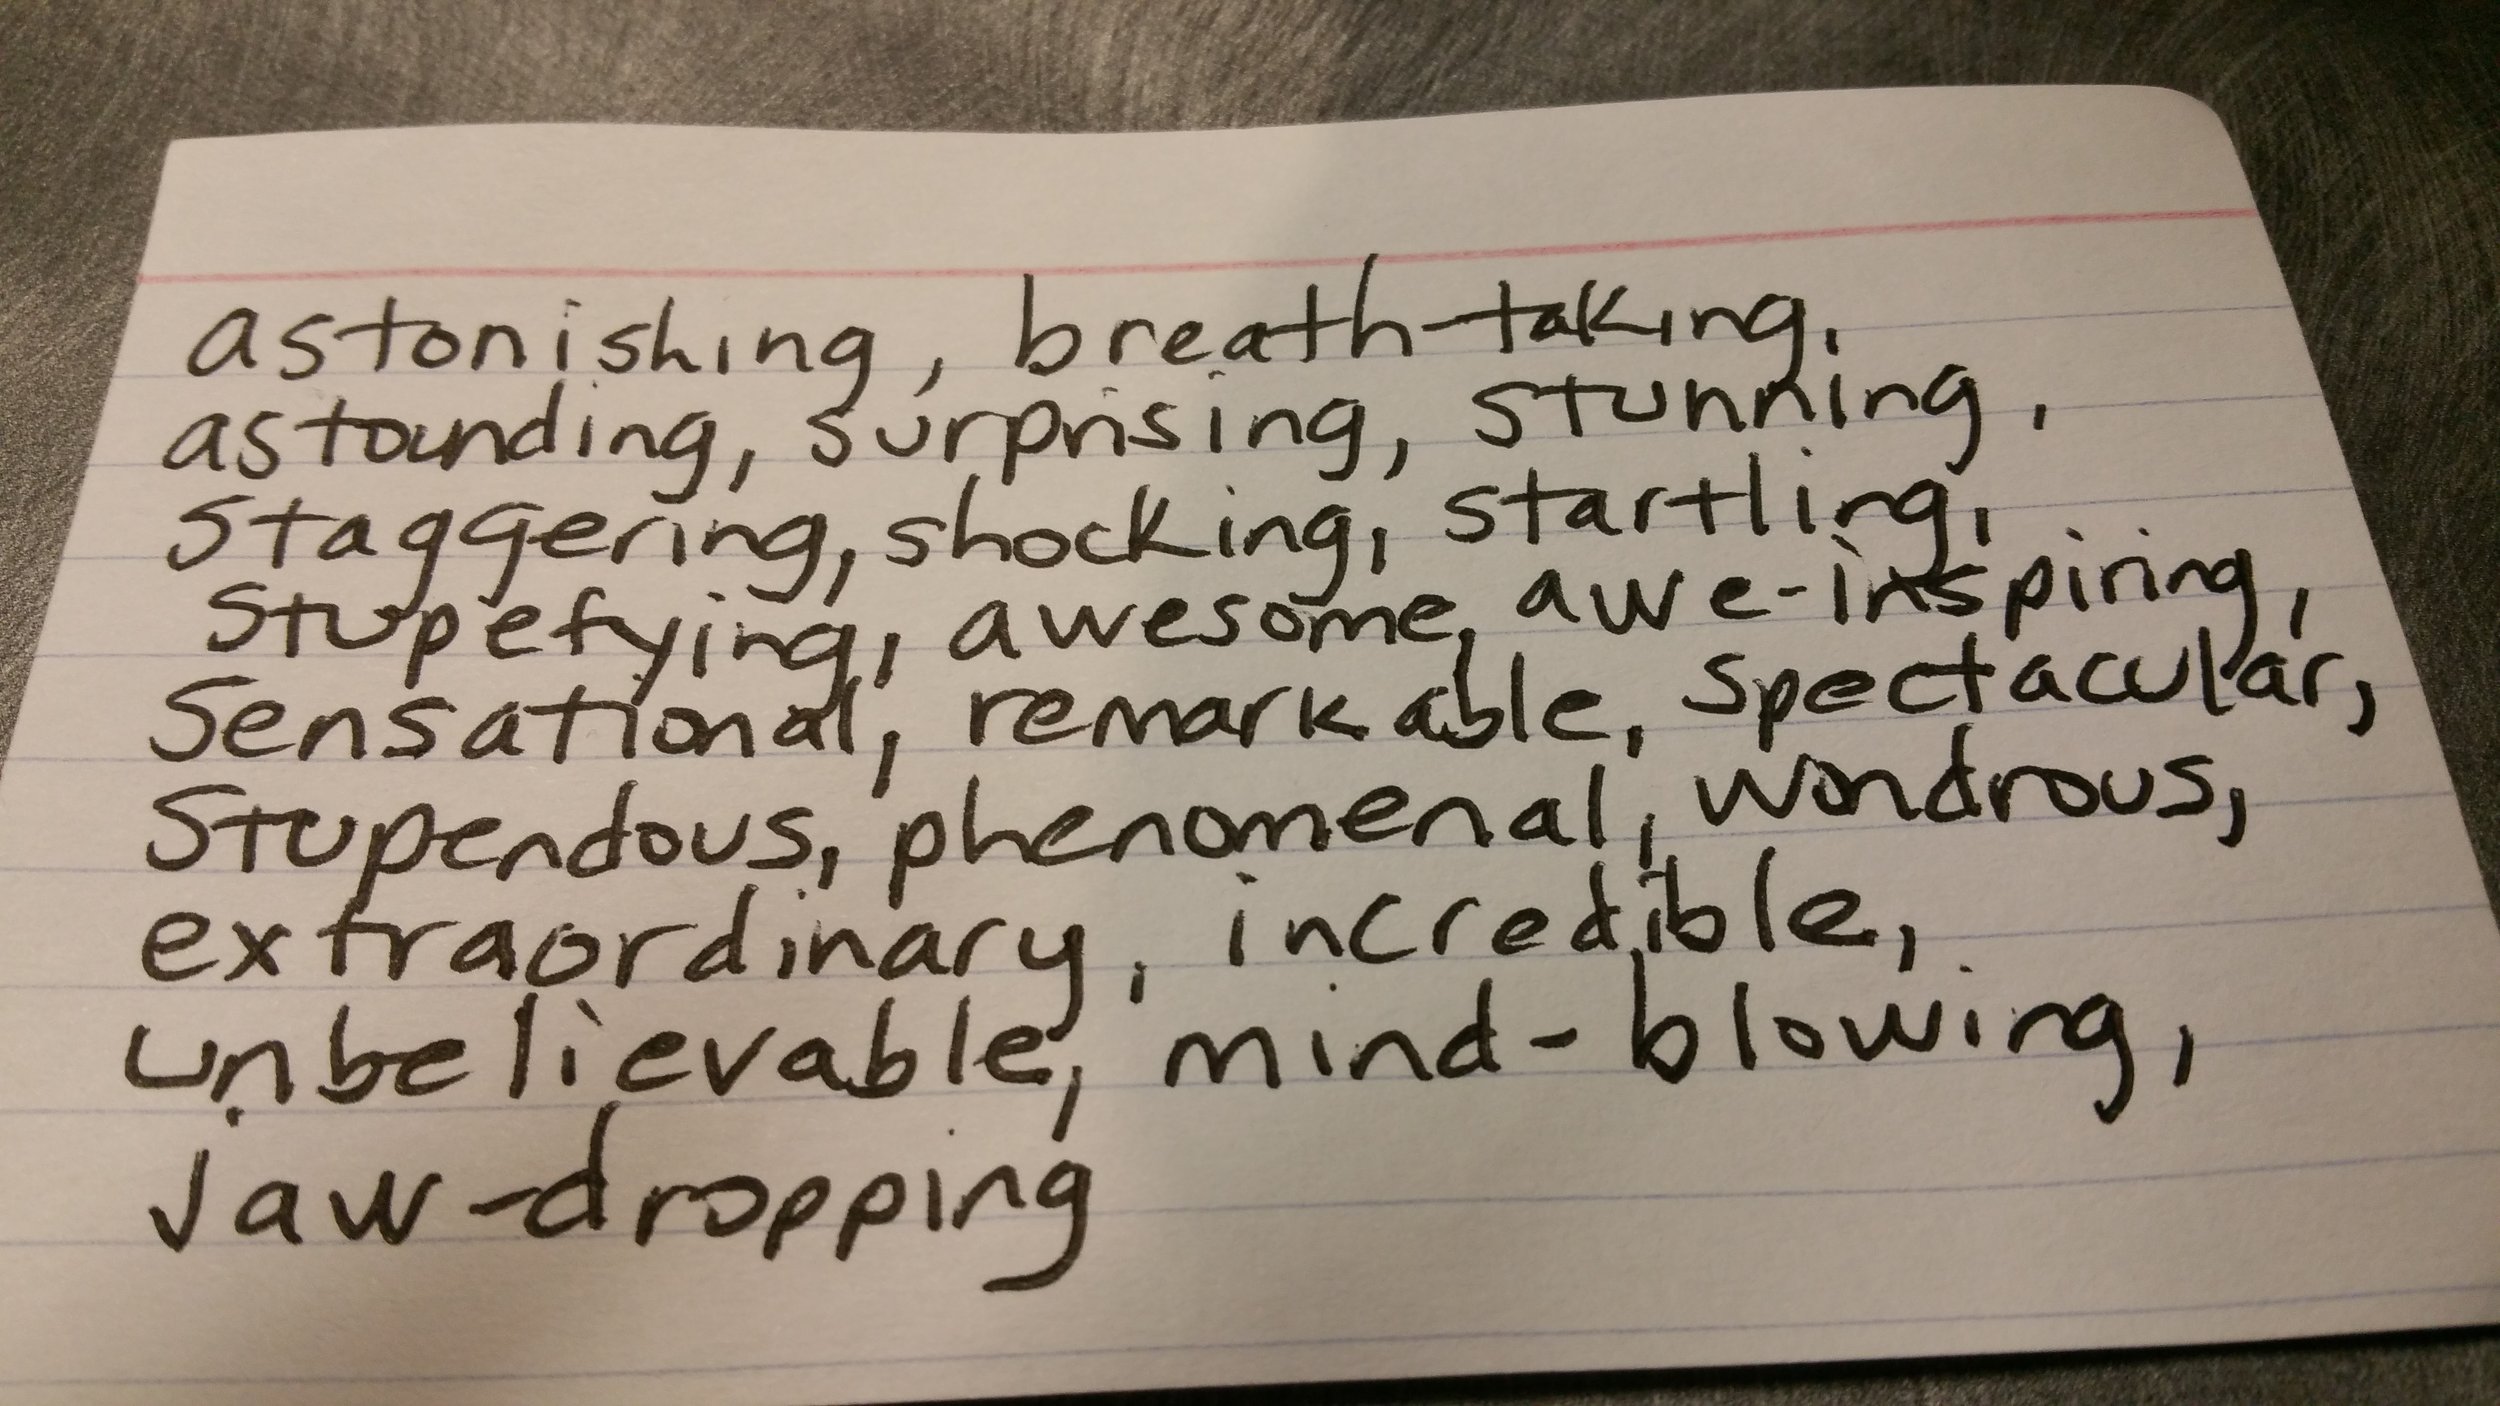 astonishing, breath-taking,
astounding, surprising, stunning,
staggering, shocking, startling,
stupefying, awesome, awe-inspiring,
Sensational, remarkable, spectacular,
Stupendous, phenomenal, wondrous,
extraordinary, incredible,
unbelievable, mind-blowing,
jaw-dropping